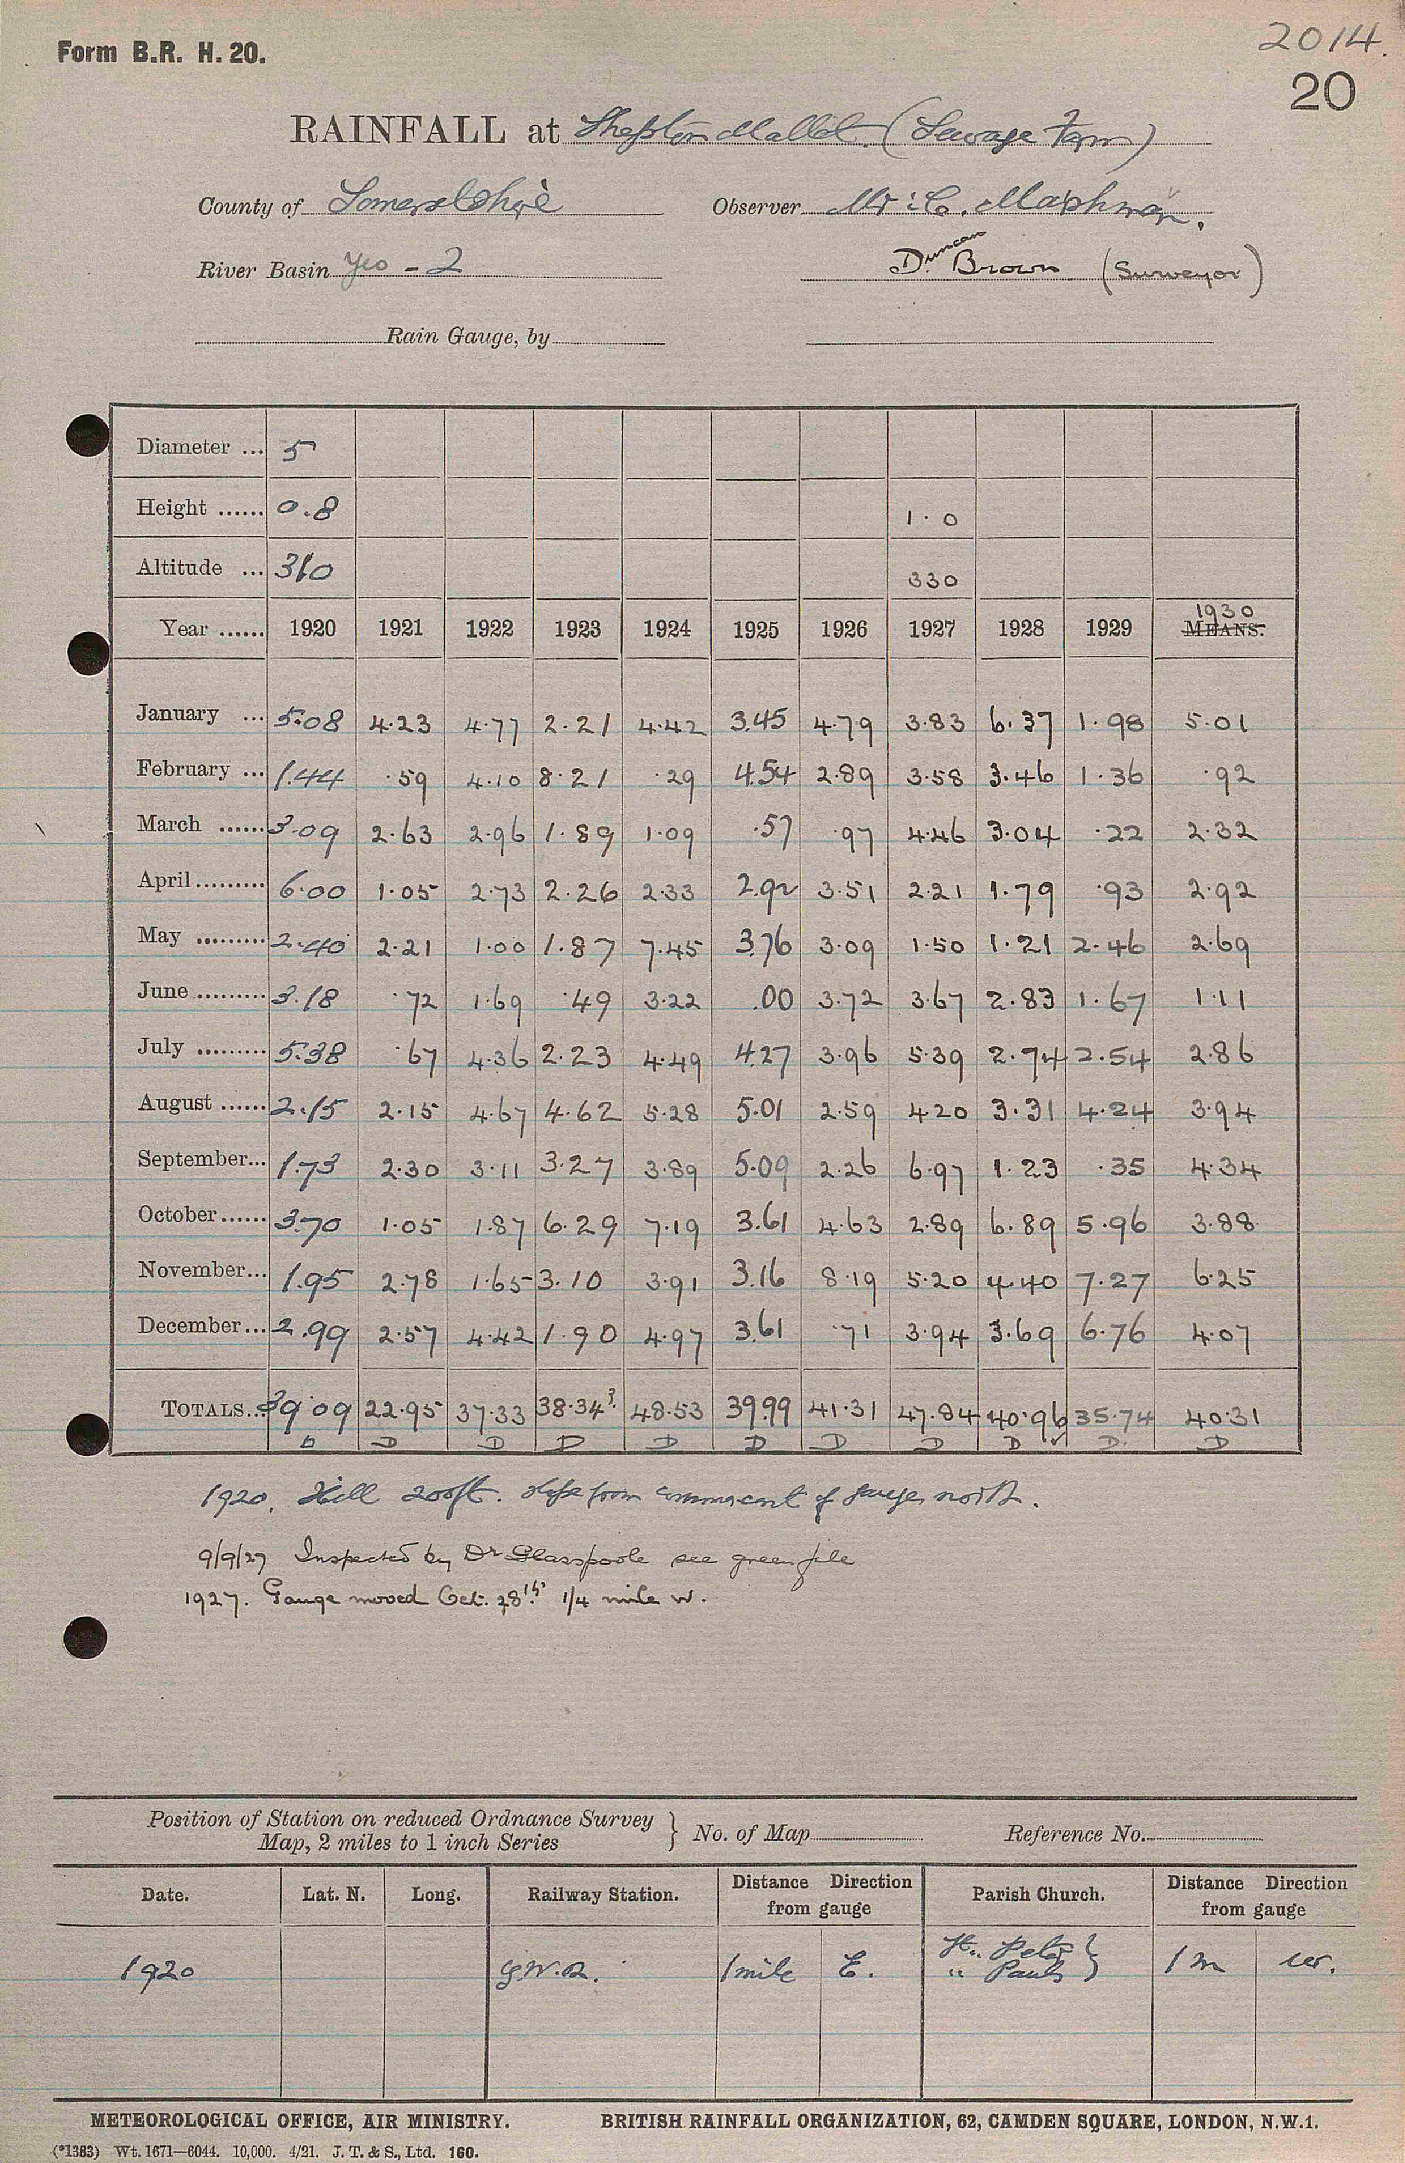 2014.
Form B.R. H. 20.
20
RAINFALL at Shepton Mallet. (Sewage Farm)
County of Somersetshire Observer Mr. C. Mashman.
River Basin Yeo - 2 Duncan Brown (Surveyor)
Rain Gauge, by
Diameter ... 5
Height ...... 0.8 1.0
Altitude ... 310 330
Year ...... 1920 1921 1922 1923 1924 1925 1926 1927 1928 1929 1930 MEANS.
January ... 5.08 4.23 4.77 2.21 4.42 3.45 4.79 3.83 6.37 1.98 5.01
February ... 1.44 .59 4.10 8.21 .29 4.54 2.89 3.58 3.46 1.36 .92
March ...... 3.09 2.63 2.96 1.89 1.09 .57 .97 4.46 3.04 .22 2.32
April ......... 6.00 1.05 2.73 2.26 2.33 2.92 3.51 2.21 1.79 .93 2.92
May ......... 2.40 2.21 1.00 1.87 7.45 3.76 3.09 1.50 1.21 2.46 2.69
June ......... 3.18 .72 1.69 .49 3.22 .00 3.72 3.67 2.83 1.67 1.11
July ......... 5.38 .67 4.36 2.23 4.49 4.27 3.96 5.39 2.74 2.54 2.86
August ...... 2.15 2.15 4.67 4.62 5.28 5.01 2.59 4.20 3.31 4.24 3.94
September... 1.73 2.30 3.11 3.27 3.89 5.09 2.26 6.97 1.23 .35 4.34
October ...... 3.70 1.05 1.87 6.29 7.19 3.61 4.63 2.89 6.89 5.96 3.88
November... 1.95 2.78 1.65 3.10 3.91 3.16 8.19 5.20 4.40 7.27 6.25
December ... 2.99 2.57 4.42 1.90 4.97 3.61 .71 3.94 3.69 6.76 4.07
TOTALS... 39.09 22.95 37.33 38.34? 48.53 39.99 41.31 47.84 40.96 35.74 40.31
D D D D D D D D D ✓ D. D
1920. Hill 200ft. slope from of gauge north.
9/9/27 Inspected by Dr Glasspoole see green file
1927. Gauge moved Oct. 28th. 1/4 mile W.
Position of Station on reduced Ordnance Survey
Map, 2 miles to 1 inch Series } No. of Map Reference No.
Date. Lat. N. Long. Railway Station. Distance Direction from gauge Parish Church. Distance Direction from gauge
1920 G.W.R. 1 mile E. St. Peter } 1 m W.
" Pauls }
METEOROLOGICAL OFFICE, AIR MINISTRY. BRITISH RAINFALL ORGANIZATION, 62, CAMDEN SQUARE, LONDON, N.W.1.
(*1383) Wt. 1671—6044. 10,000. 4/21. J. T. & S., Ltd. 160.